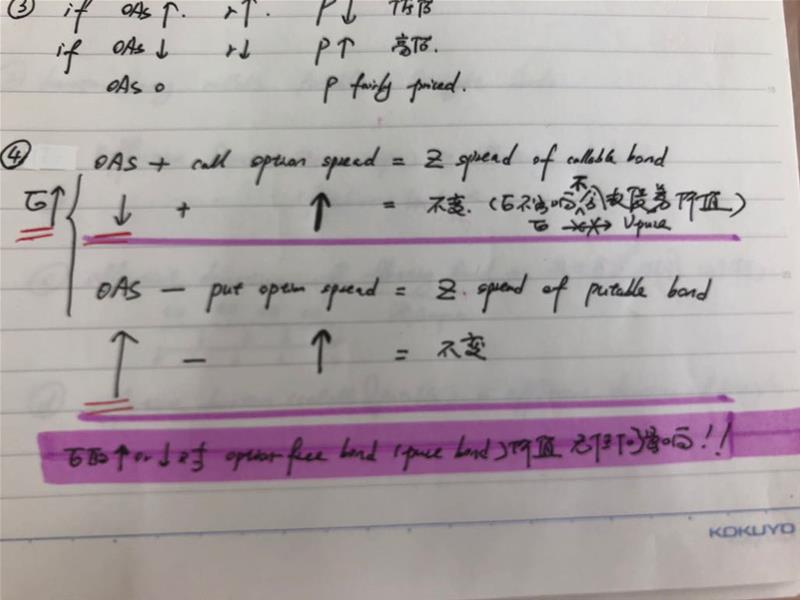 ③ if OAS ↑. r ↑. P ↓ 低估
if OAS ↓ r ↓ P ↑ 高估.
OAS 0 P fairly priced.
④ OAS + call option spread = Z spread of callable bond
σ↑ ↓ + ↑ = 不变. (σ不影响不含权债券价值)
σ ↔ Vpure
OAS - put option spread = Z. spread of putable bond
↑ - ↑ = 不变
↑ or ↓ 对 option-free bond (pure bond) 价值 无任何影响!!
KOKUYO